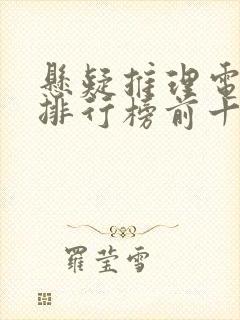 懸疑推理電
排行榜前十
羅瑩雪